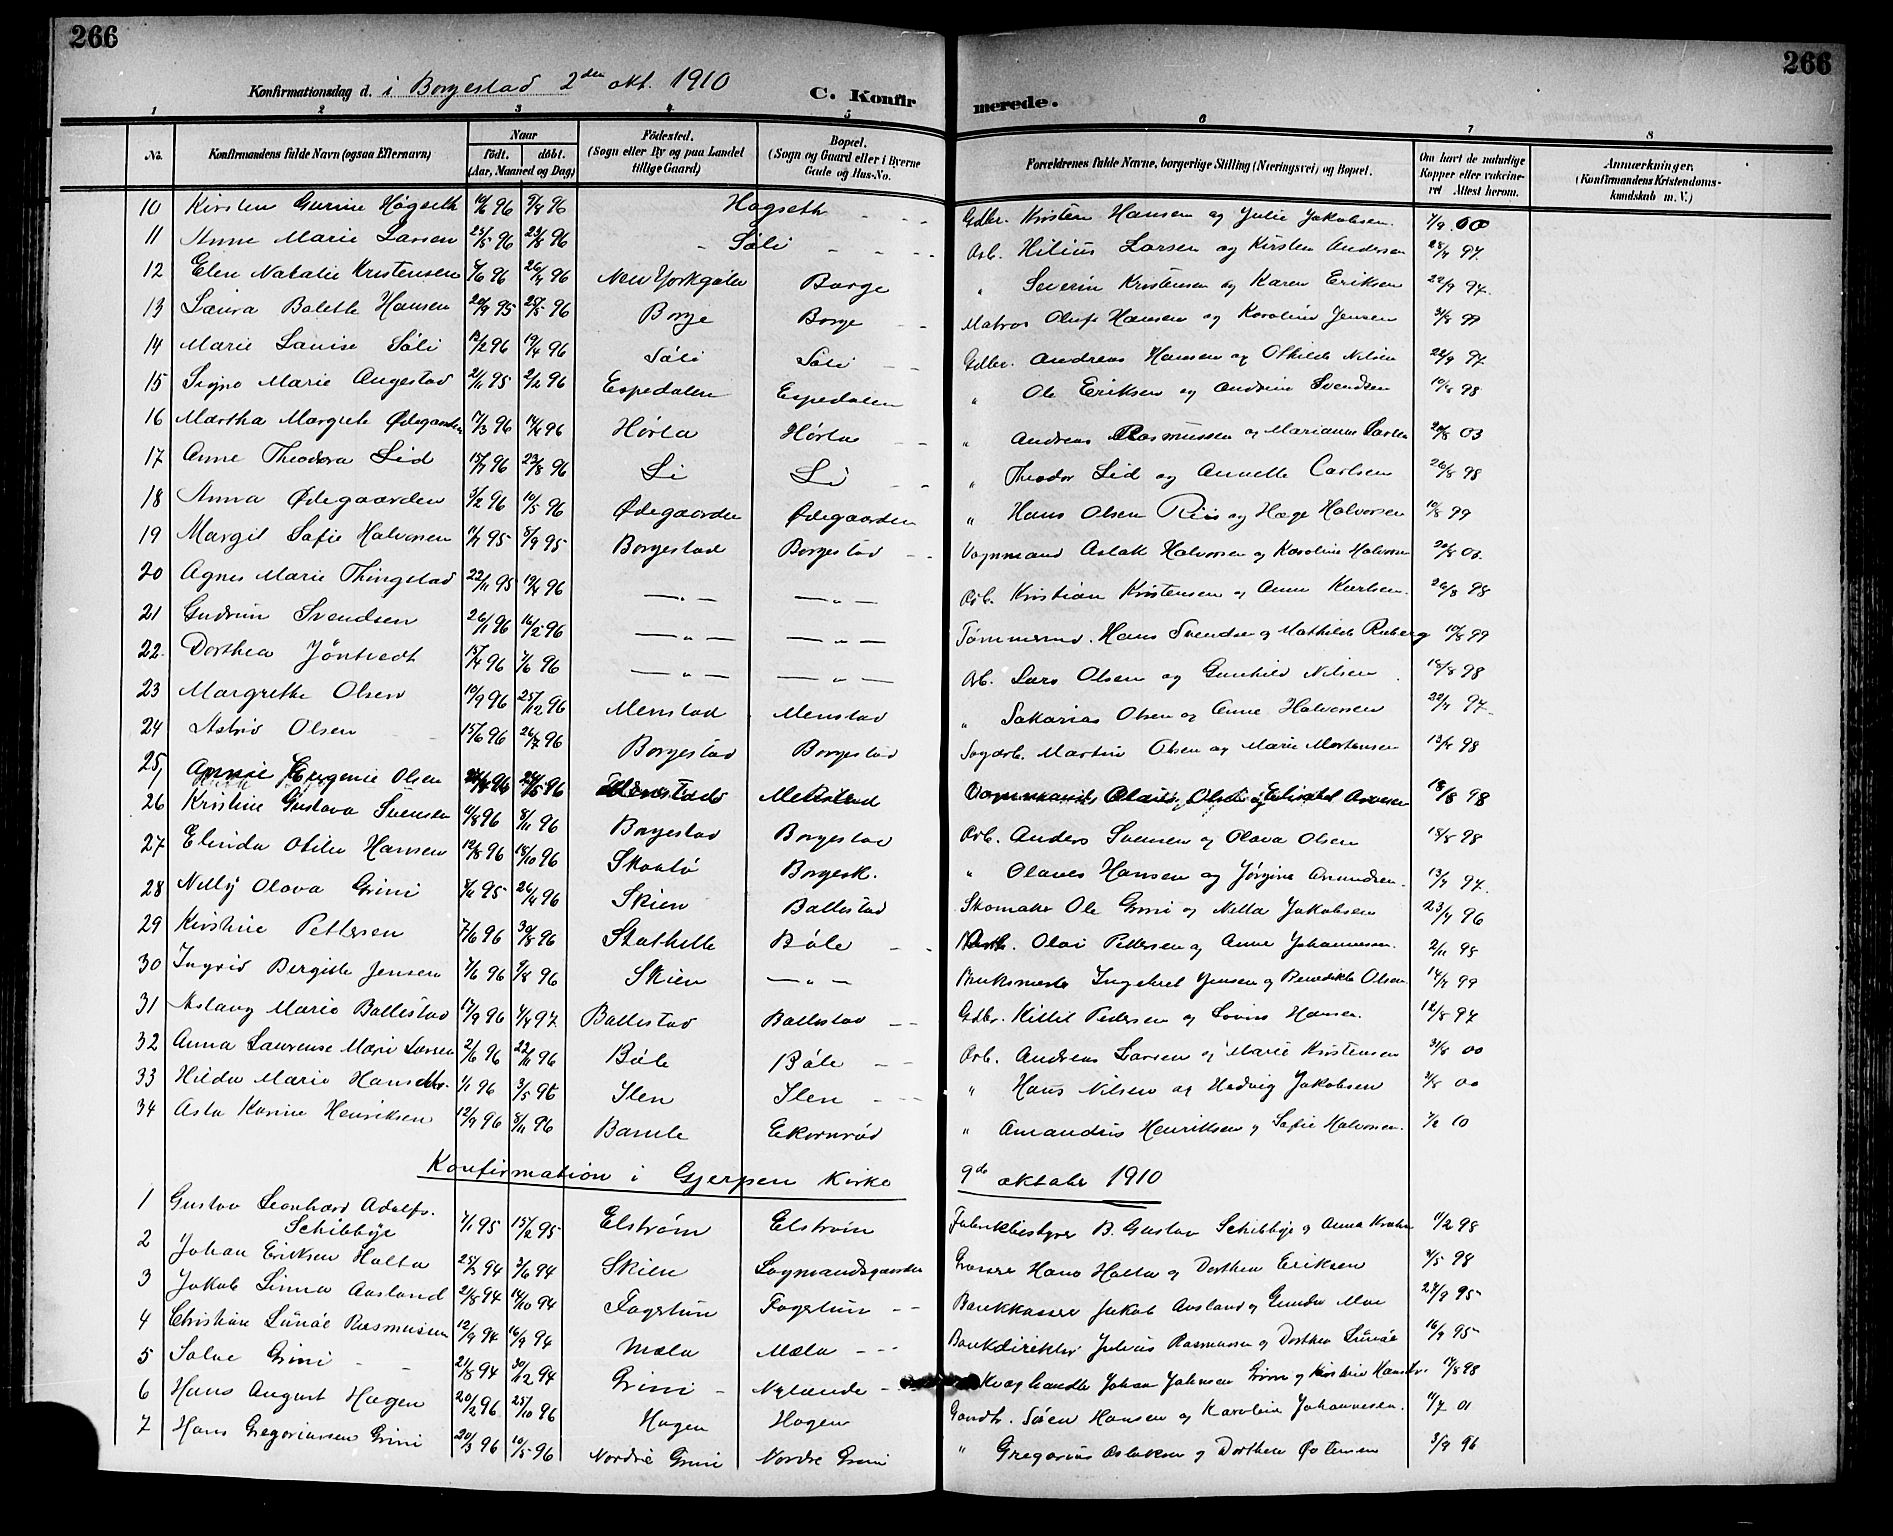 266
266
Konfirmationsdag d. i Borgestad 2den okt. 1910
C. Konfirmerede.
1 2 3 4 5 6 7 8
No. Konfirmandens fulde Navn (ogsaa Efternavn) Naar født. døbt. (Aar, Maaned og Dag) Fødested. (Sogn eller By og paa Landet tillige Gaard) Bopæl. (Sogn og Gaard eller i Byerne Gade og Hus-No. Forældrenes fulde Navne, borgerlige Stilling (Næringsvei) og Bopæl. Om havt de naturlige Kopper eller vakcineret Attest herom. Anmærkninger. (Konfirmandens Kristendomskundskab m. V.)
10 Kirsten Gurine Høgseth 96 96 Høgseth Gdbr. Kristen Hansen og Julie Jakobsen 00
11 Anne Marie Larsen 25/5 96 23/8 96 Søli Arb. Hilius Larsen og Kirsten Andersen 97
12 Elen Natalie Kristensen 96 96 New Yorkgata Borge " Severin Kristensen og Karen Eriksen 97.
13 Laura Bolette Hansen 95 96 Borge Borge Matros Oluf Hansen og Karoline Jensen 99
14 Marie Louise Søli 96 19/4 96 Søli Søli Gdbr. Andreas Hansen og Othilde Nilsen 97
15 Signe Marie Augestad 95 2/2 96 Espedalen Espedalen " Ole Eriksen og Andrine Svendsen 98
16 Martha Margrete Ødegaarden 17/3 96 96 Hørta Hørta " Andreas Rasmussen og Marianne Larsen 03
17 Anne Theodora Lid 96 23/8 96 Li Li " Theodor Lid og Annette Carlsen 98
18 Anna Ødegaarden 96 10/5 96 Ødegaarden Ødegaarden " Hans Olsen Riis og Hæge Halvorsen 10/8 99
19 Margit Sofie Halvorsen 95 8/9 95 Borgestad Borgestad Vognmand Aslak Halvorsen og Karoline Halvorsen
20 Agnes Marie Thingstad 22/11 95 96 — " — — " — Arb. Kristian Kristensen og Anne Karlsen. 26/8 98
21 Gudrun Svendsen 26/1 96 16/2 96 — " — — " — Tømmerm. Hans Svendsen og Mathilde Ruberg 10/8 99
22. Dorthea Jøntvedt 96 96 — " — — " — Arb. Lars Olsen og Gunhild Nilsen 18/8 98
23 Margrethe Olsen 10/9 96 25/12 96 Menstad Menstad " Sakarias Olsen og Anne Halvorsen 97
24 Astrid Olsen 15/6 96 26/7 96 Borgestad Borgestad Sagarb. Martin Olsen og Marie Mortensen 98
25 Eugenie Olsen 96 96 Menstad Menstad Vognmand Olaus Olsen og Elisabet 18/8 98
26 Kristine Gustava Svensen 96 8/11 96 Borgestad Borgestad Arb. Anders Svensen og Olava Olsen 18/8 98
27 Elinda Otilie Hansen 96 18/10 96 Skaatø Borgesk. " Olaves Hansen og Jørgine Amundsen. 97.
28 Nelly Olava Grini 95 96 Skien Ballestad Skomaker Ole Grini og Nella Jakobsen 96
29 Kirstine Pettersen 7/6 96 30/8 96 Stathelle Bøle Arb. Olai Pettersen og Anne Johannesen. 2/11 98
30 Ingrid Bergitte Jensen 96 9/8 96 Skien — " — Bruksmester Ingebret Jensen og Benedikte Olsen 99
31 Aslaug Marie Ballestad 17/9 96 97 Ballestad Ballestad Gdbr. Kittil Pedersen og Lovise Hansen. 12/8 97
32 Anna Laurense Marie Larsen 2/6 96 22/11 96 Bøle Bøle Arb. Andreas Larsen og Marie Kristensen 31/8 00
33 Hilda Marie Hans 1/1 96 3/5 96 Ilen Ilen " Hans Nilsen og Hedvig Jakobsen 00
34 Asta Karine Henriksen 12/9 96 8/11 96 Bamle Ekornrød " Amandus Henriksen og Sofie Halvorsen. 10
Konfirmation i Gjerpen Kirke 9de oktober 1910
1 Gustav Leonhard Adolfs.
Schibbye 95 15/2 95 Elstrøm Elstrøm Fabrikbestyrer B. Gustav Schibbye og Anna 11/2 98
2 Johan Eriksen Holta 94 3/6 94 Skien Lagmandsgaarden Grosser Hans Holta og Dorthea Eriksen 98
3 Jakob Linna Aasland 21/8 94 14/10 94 Fagertun Fagertun Bankkasser Jakob Aasland og Gunda Moe 95
4 Christian Lunøe Rasmussen 12/9 94 94 Mæla Mæla Bankdirektør Julius Rasmussen og Dorthea Lunøe 95
5 Solve Grini 21/8 94 30/12 94 Grini Nylænde Kvæghandler Johan Johnsen Grini og Kirstine Hansdtr. 98
6 Hans August Hagen 20/2 96 25/10 96 Hagen Hagen Gaardbr. Søren Hansen og Karoline Johannesen. 01
7 Hans Gregoriussen Grini 20/3 96 10/5 96 Nordre Grini Nordre Grini " Gregorius Aslaksen og Dorthea Østensen 96